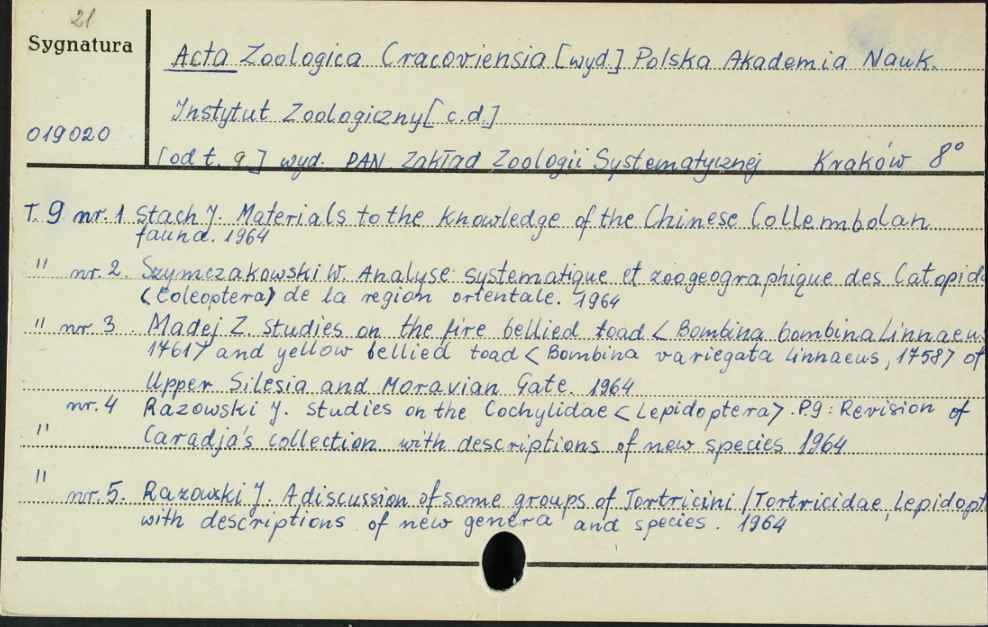 21
Sygnatura
Acta Zoologica Cracoviensia [wyd.] Polska Akademia Nauk.
Instytut Zoologiczny [c.d.]
019020
[od t. 9] wyd. PAN Zakład Zoologii Systematycznej Kraków 8°
T. 9 nr. 1 Stach J. Materials to the knowledge of the Chinese Collembolan
fauna. 1964
" nr. 2. Szymczakowski W. Analyse systematique et zoogeographique des Catopida
(Coleoptera) de la region orientale. 1964
" nr 3. Madej Z. Studies on the fire bellied toad <Bombina bombina Linnaeus
1761> and yellow bellied toad <Bombina variegata Linnaeus, 1758> of
Upper Silesia and Moravian Gate. 1964
nr. 4 Razowski J. Studies on the Cochylidae <Lepidoptera>. P.9: Revision of
" Caradja's collection with descriptions of new species 1964
"
nr. 5. Razowski J. A discussion of some groups of Tortricini /Tortricidae, Lepidopt
with descriptions of new genera and species. 1964